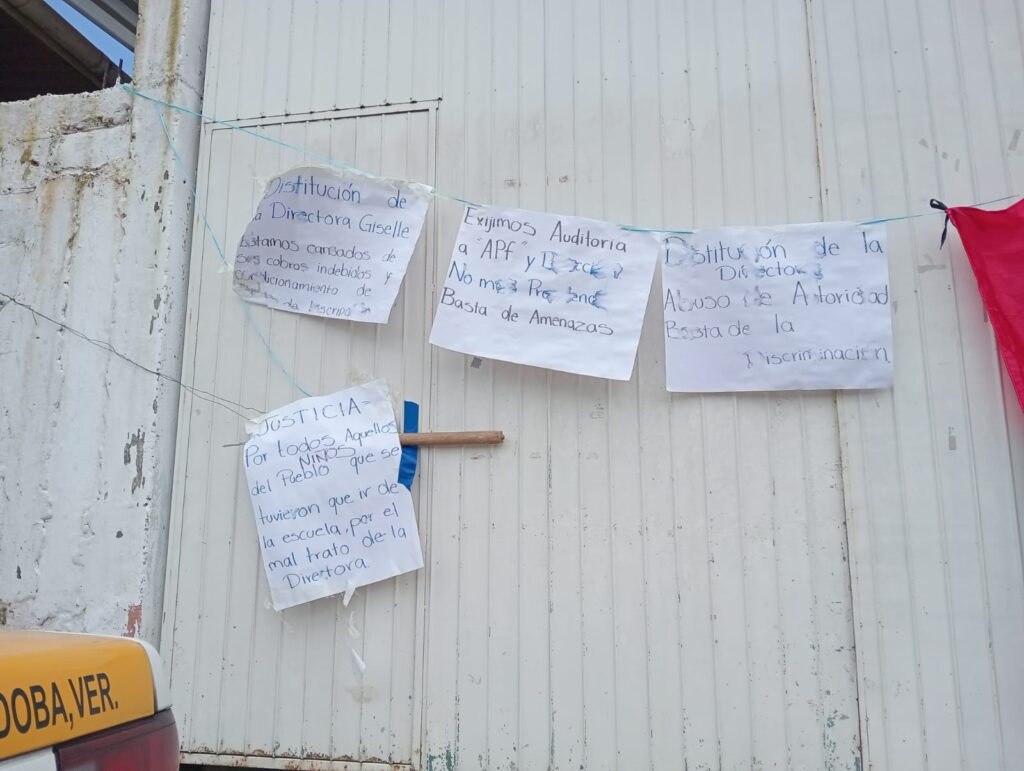 Distitución de
la Directora Giselle
Estamos cansados de
sus cobros indebidos y
condicionamiento de
Exijimos Auditoria
a "APf" y
No más
Basta de Amenazas
Destitución de la
Directora
Abuso de Autoridad
Basta de la
Discriminacion
JUSTICIA=
Por todos Aquellos
NIÑOS
del Pueblo que se
tuvieron que ir de
la escuela, por el
mal trato de la
Directora.
DOBA, VER.